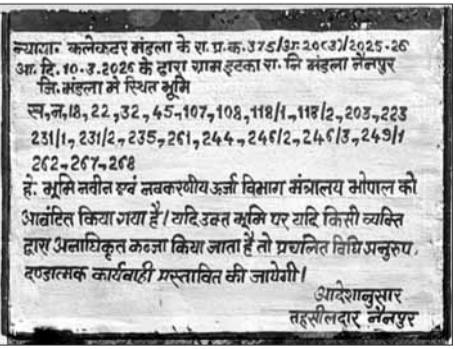 न्याया॰ कलेक्टर मंडला के रा.प्र.क.375/अ-20(3)/2025-26
आ. दि. 10-3.2026 के द्वारा ग्राम इटका रा. नि मंडला नैनपुर
जि.मंडला मे स्थित भूमि
ख,न,18, 22, 32, 45-107, 108, 118/1-118/2, 203-223
231/1, 231/2, 235, 261, 244, 246/2, 246/3, 249/1
262-267-268
है. भूमि नवीन एवं नवकरणीय ऊर्जा विभाग मंत्रालय भोपाल को
आवंटित किया गया है। यदि उक्त भूमि पर यदि किसी व्यक्ति
द्वारा अनाधिकृत कब्जा किया जाता है तो प्रचलित विधि अनुरुप.
दण्डात्मक कार्यवाही प्रस्तावित की जायेगी।
आदेशानुसार
तहसीलदार नैनपुर